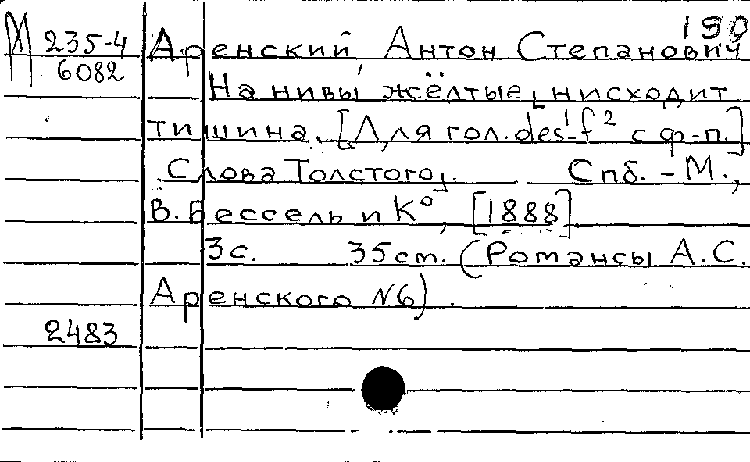 190
М 235-4 Аренский, Антон Степанович
6082
На нивы жёлтые нисходит
тишина. [Для гол. des¹-f² с ф-п.]
Слова Толстого. Спб. - М.,
В. Бессель и К°, [1888]
3с. 35cm. (Романсы А.С.
Аренского №6).
2483